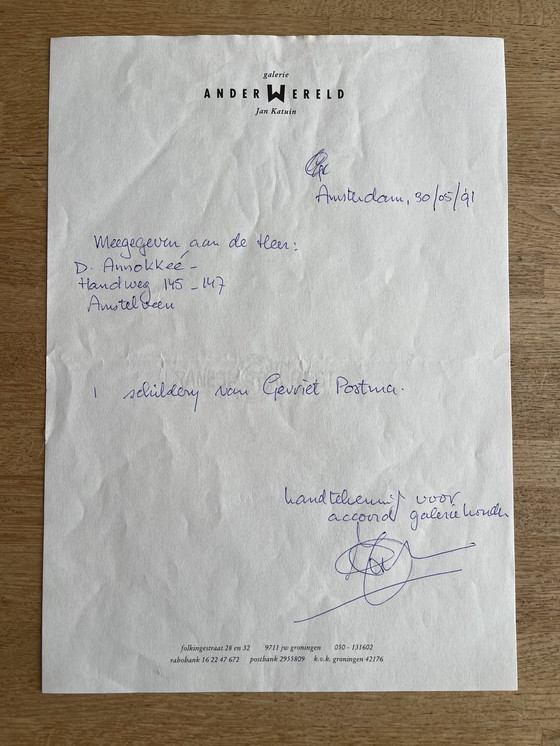 galerie
ANDERWERELD
Jan Katuin
Amsterdam, 30/05/91
Meegegeven aan de Heer:
D. Annokkeé -
Handweg 145-147
Amstelveen
1 schildery van Gerriet Postma.
handtekening voor
accoord galeriehouder
folkingestraat 28 en 32 9711 jw groningen 050-131602
rabobank 16 22 47 672 postbank 2955809 k.v.k. groningen 42176